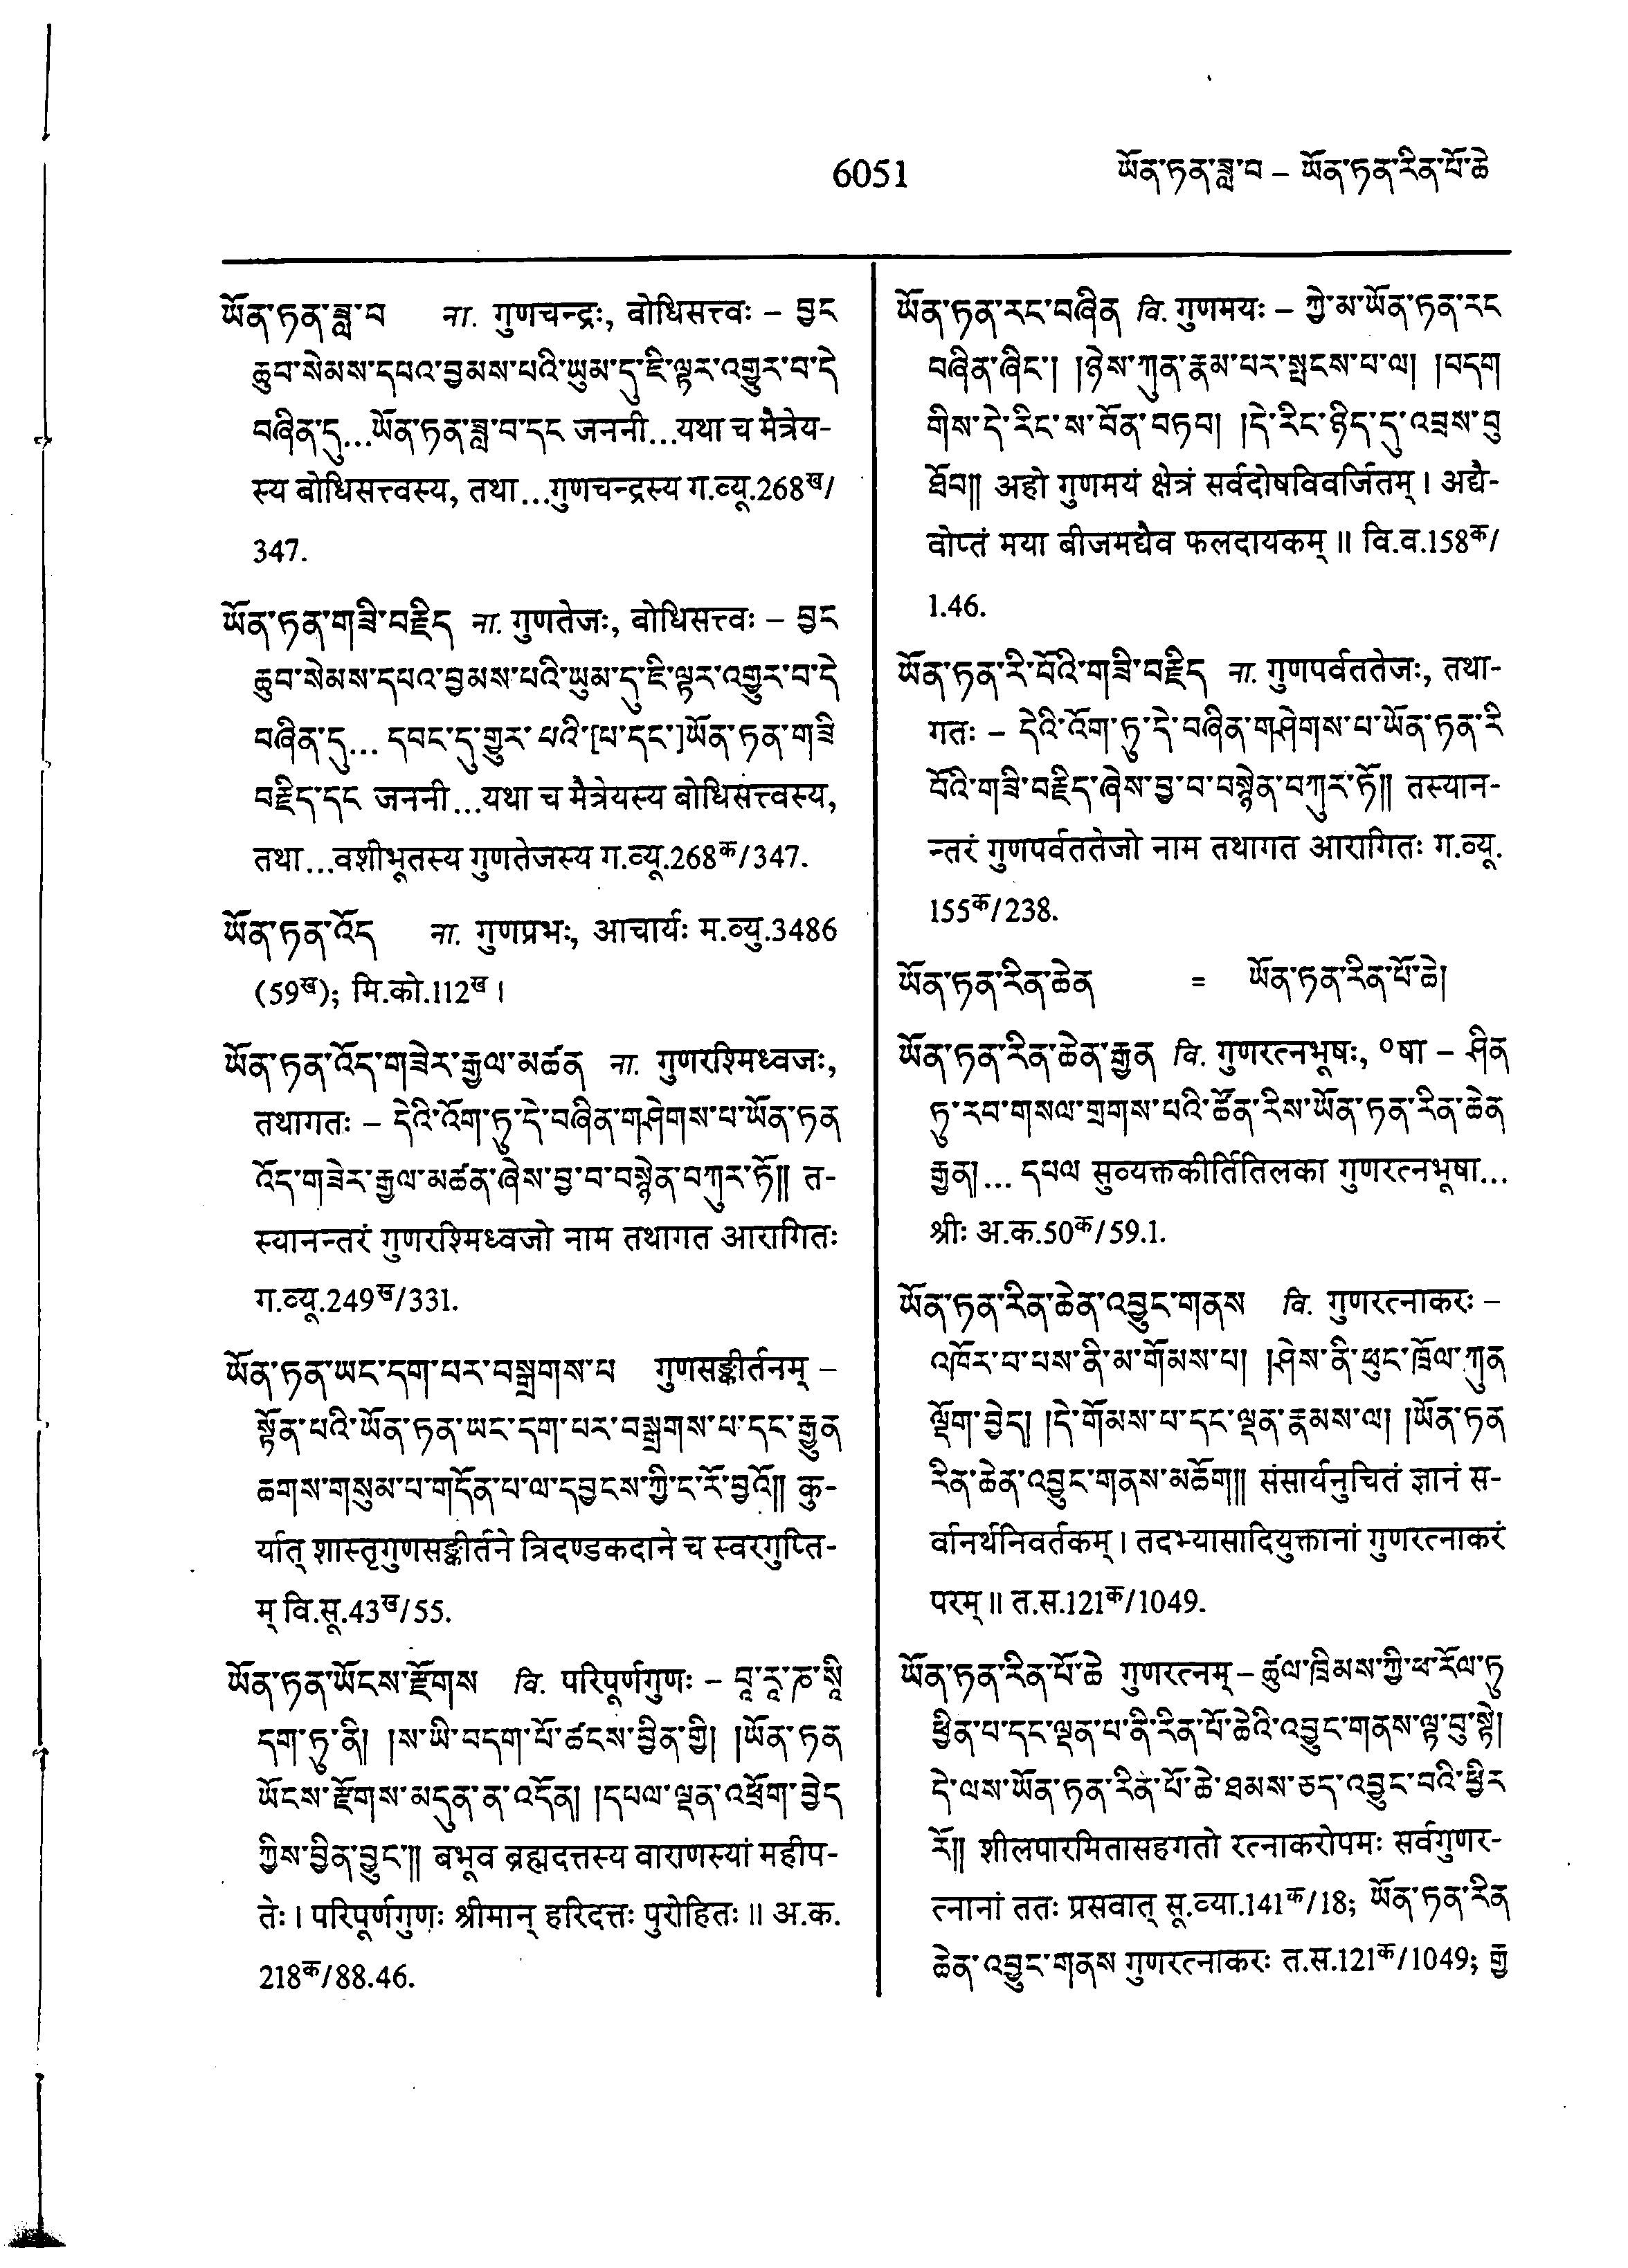 6051
ཡོན་ཏན་ཟླ་བ – ཡོན་ཏན་རིན་པོ་ཆེ
ཡོན་ཏན་ཟླ་བ ना. गुणचन्द्रः, बोधिसत्त्वः – བྱང
ཆུབ་སེམས་དཔའ་བྱམས་པའི་ཡུམ་དུ་ཇི་ལྟར་འགྱུར་བ་དེ
བཞིན་དུ...ཡོན་ཏན་ཟླ་བ་དང जननी...यथा च मैत्रेय-
स्य बोधिसत्त्वस्य, तथा...गुणचन्द्रस्य ग.व्यू.268ख/
347.
ཡོན་ཏན་གཟི་བརྗིད ना. गुणतेजः, बोधिसत्त्वः – བྱང
ཆུབ་སེམས་དཔའ་བྱམས་པའི་ཡུམ་དུ་ཇི་ལྟར་འགྱུར་བ་དེ
བཞིན་དུ... དབང་དུ་གྱུར་པའི་[པ་དང་]ཡོན་ཏན་གཟི
བརྗིད་དང जननी...यथा च मैत्रेयस्य बोधिसत्त्वस्य,
तथा...वशीभूतस्य गुणतेजस्य ग.व्यू.268क/347.
ཡོན་ཏན་འོད ना. गुणप्रभः, आचार्यः म.व्यु.3486
(59ख); मि.को.112ख ।
ཡོན་ཏན་འོད་གཟེར་རྒྱལ་མཚན ना. गुणरश्मिध्वजः,
तथागतः – དེའི་འོག་ཏུ་དེ་བཞིན་གཤེགས་པ་ཡོན་ཏན
འོད་གཟེར་རྒྱལ་མཚན་ཞེས་བྱ་བ་བསྙེན་བཀུར་ཏོ།། त-
स्यानन्तरं गुणरश्मिध्वजो नाम तथागत आरागितः
ग.व्यू.249ख/331.
ཡོན་ཏན་ཡང་དག་པར་བསྒྲགས་པ गुणसङ्कीर्तनम् –
སྟོན་པའི་ཡོན་ཏན་ཡང་དག་པར་བསྒྲགས་པ་དང་རྒྱུན
ཆགས་གསུམ་པ་གདོན་པ་ལ་དབྱངས་ཀྱི་ང་རོ་བྱའོ།། कु-
र्यात् शास्तृगुणसङ्कीर्तने त्रिदण्डकदाने च स्वरगुप्ति-
म् वि.सू.43ख/55.
ཡོན་ཏན་ཡོངས་རྫོགས वि. परिपूर्णगुणः – བཱ་རཱ་ཎ་སཱི
དག་ཏུ་ནི། །ས་ཡི་བདག་པོ་ཚངས་བྱིན་གྱི། །ཡོན་ཏན
ཡོངས་རྫོགས་མདུན་ན་འདོན། །དཔལ་ལྡན་འཕྲོག་བྱེད
ཀྱིས་བྱིན་བྱུང་།། बभूव ब्रह्मदत्तस्य वाराणस्यां महीप-
तेः । परिपूर्णगुणः श्रीमान् हरिदत्तः पुरोहितः ॥ अ.क.
218क/88.46.
ཡོན་ཏན་རང་བཞིན वि. गुणमयः – ཀྱེ་མ་ཡོན་ཏན་རང
བཞིན་ཞིང་། །ཉེས་ཀུན་རྣམ་པར་སྤངས་པ་ལ། །བདག
གིས་དེ་རིང་ས་བོན་བཏབ། །དེ་རིང་ཉིད་དུ་འབྲས་བུ
ཐོབ།། अहो गुणमयं क्षेत्रं सर्वदोषविवर्जितम् । अद्यै-
वोप्तं मया बीजमद्यैव फलदायकम् ॥ वि.व.158क/
1.46.
ཡོན་ཏན་རི་བོའི་གཟི་བརྗིད ना. गुणपर्वततेजः, तथा-
गतः – དེའི་འོག་ཏུ་དེ་བཞིན་གཤེགས་པ་ཡོན་ཏན་རི
བོའི་གཟི་བརྗིད་ཞེས་བྱ་བ་བསྙེན་བཀུར་ཏོ།། तस्यान-
न्तरं गुणपर्वततेजो नाम तथागत आरागितः ग.व्यू.
155क/238.
ཡོན་ཏན་རིན་ཆེན = ཡོན་ཏན་རིན་པོ་ཆེ།
ཡོན་ཏན་རིན་ཆེན་རྒྱན वि. गुणरत्नभूषः, ०षा – ཤིན
ཏུ་རབ་གསལ་གྲགས་པའི་ཚོན་རིས་ཡོན་ཏན་རིན་ཆེན
རྒྱན།... དཔལ सुव्यक्तकीर्तितिलका गुणरत्नभूषा...
श्रीः अ.क.50क/59.1.
ཡོན་ཏན་རིན་ཆེན་འབྱུང་གནས वि. गुणरत्नाकरः –
འཁོར་བ་པས་ནི་མ་གོམས་པ། །ཤེས་ནི་ཕུང་ཁྲོལ་ཀུན
ལྡོག་བྱེད། །དེ་གོམས་པ་དང་ལྡན་རྣམས་ལ། །ཡོན་ཏན
རིན་ཆེན་འབྱུང་གནས་མཆོག།། संसार्यनुचितं ज्ञानं स-
र्वानर्थनिवर्तकम् । तदभ्यासादियुक्तानां गुणरत्नाकरं
परम् ॥ त.स.121क/1049.
ཡོན་ཏན་རིན་པོ་ཆེ गुणरत्नम् – ཚུལ་ཁྲིམས་ཀྱི་ཕ་རོལ་ཏུ
ཕྱིན་པ་དང་ལྡན་པ་ནི་རིན་པོ་ཆེའི་འབྱུང་གནས་ལྟ་བུ་སྟེ།
དེ་ལས་ཡོན་ཏན་རིན་པོ་ཆེ་ཐམས་ཅད་འབྱུང་བའི་ཕྱིར
རོ།། शीलपारमितासहगतो रत्नाकरोपमः सर्वगुणर-
त्नानां ततः प्रसवात् सू.व्या.141क/18; ཡོན་ཏན་རིན
ཆེན་འབྱུང་གནས गुणरत्नाकरः त.स.121क/1049; རྒྱ